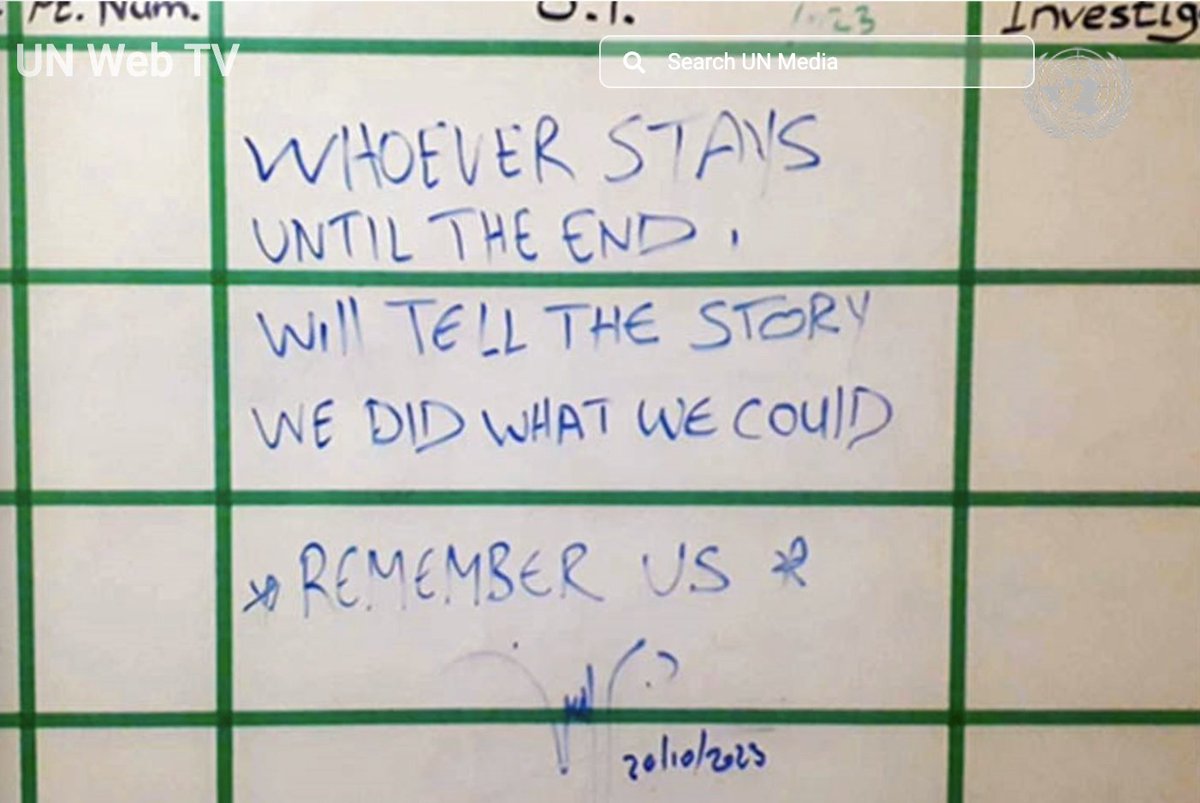 Pt. Num.
Investig
UN Web TV
Search UN Media
WHOEVER STAYS
UNTIL THE END.
Will TELL THE STORY
WE DID WHAT WE COUlD
* REMEMBER US *
20/10/2023